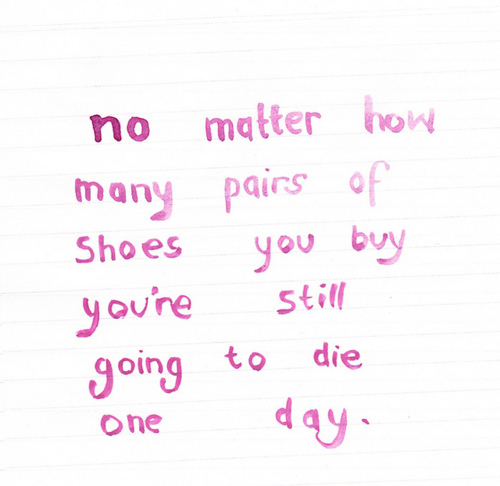 no matter how
many pairs of
shoes you buy
you're still
going to die
one day.